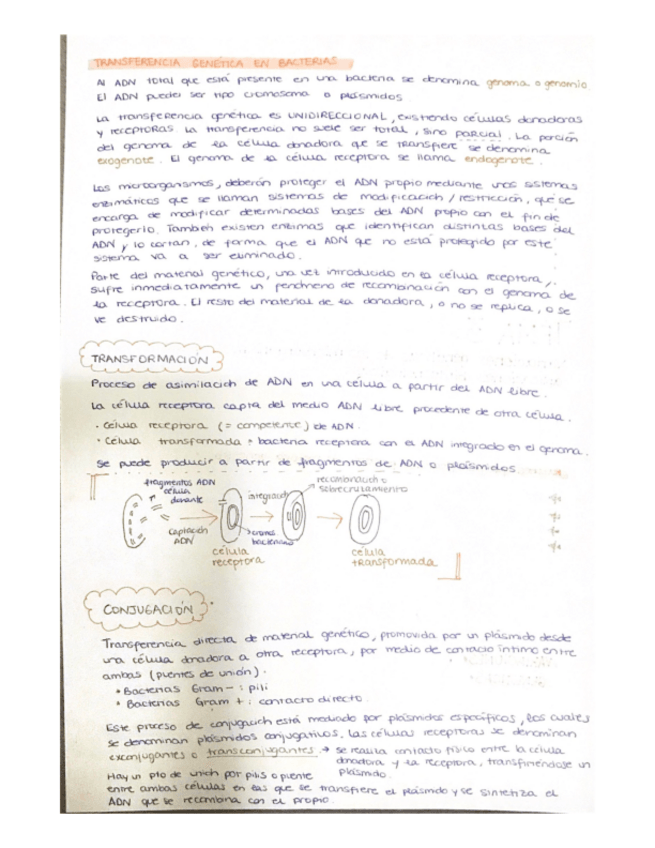 TRANSFERENCIA GENÉTICA EN BACTERIAS
Al ADN total que está presente en una bacteria se denomina genoma o genomio.
El ADN puede ser tipo cromosoma o plásmidos
La transferencia genética es UNIDIRECCIONAL, existiendo células donadoras
y receptoras. La transferencia no suele ser total, sino parcial. La porción
del genoma de la célula donadora que se transfiere se denomina
exogenote. El genoma de la célula receptora se llama endogenote.
Los microorganismos, deberán proteger el ADN propio mediante unos sistemas
enzimáticos que se llaman sistemas de modificación / restricción, que se
encarga de modificar determinadas bases del ADN propio con el fin de
protegerlo. También existen enzimas que identifican distintas bases del
ADN y lo cortan, de forma que el ADN que no está protegido por este
sistema va a ser eliminado.
Parte del material genético, una vez introducido en la célula receptora,
sufre inmediatamente un fenómeno de recombinación con el genoma de
la receptora. El resto del material de la donadora, o no se replica, o se
ve destruido.
TRANSFORMACIÓN
Proceso de asimilación de ADN en una célula a partir del ADN libre.
La célula receptora capta del medio ADN libre procedente de otra célula.
· Célula receptora (= competente) de ADN.
· Célula transformada = bacteria receptora con el ADN integrado en el genoma.
Se puede producir a partir de fragmentos de ADN o plásmidos.
fragmentos ADN
célula
donante
captación
ADN
célula
receptora
integración
bacteriano
recombinación o
célula
transformada
CONJUGACIÓN
Transferencia directa de material genético, promovida por un plásmido desde
una célula donadora a otra receptora, por medio de contacto íntimo entre
ambas (puentes de unión).
* Bacterias Gram - : pili
* Bacterias Gram + : contacto directo.
Este proceso de conjugación está mediado por plásmidos específicos, los cuales
se denominan plásmidos conjugativos. Las células receptoras se denominan
exconjugantes o transconjugantes → se realiza contacto físico entre la célula
donadora y la receptora, transfiriéndose un
plásmido.
Hay un pto de unión por pilis o puente
entre ambas células en las que se transfiere el plásmido y se sintetiza el
ADN que se recombina con el propio.